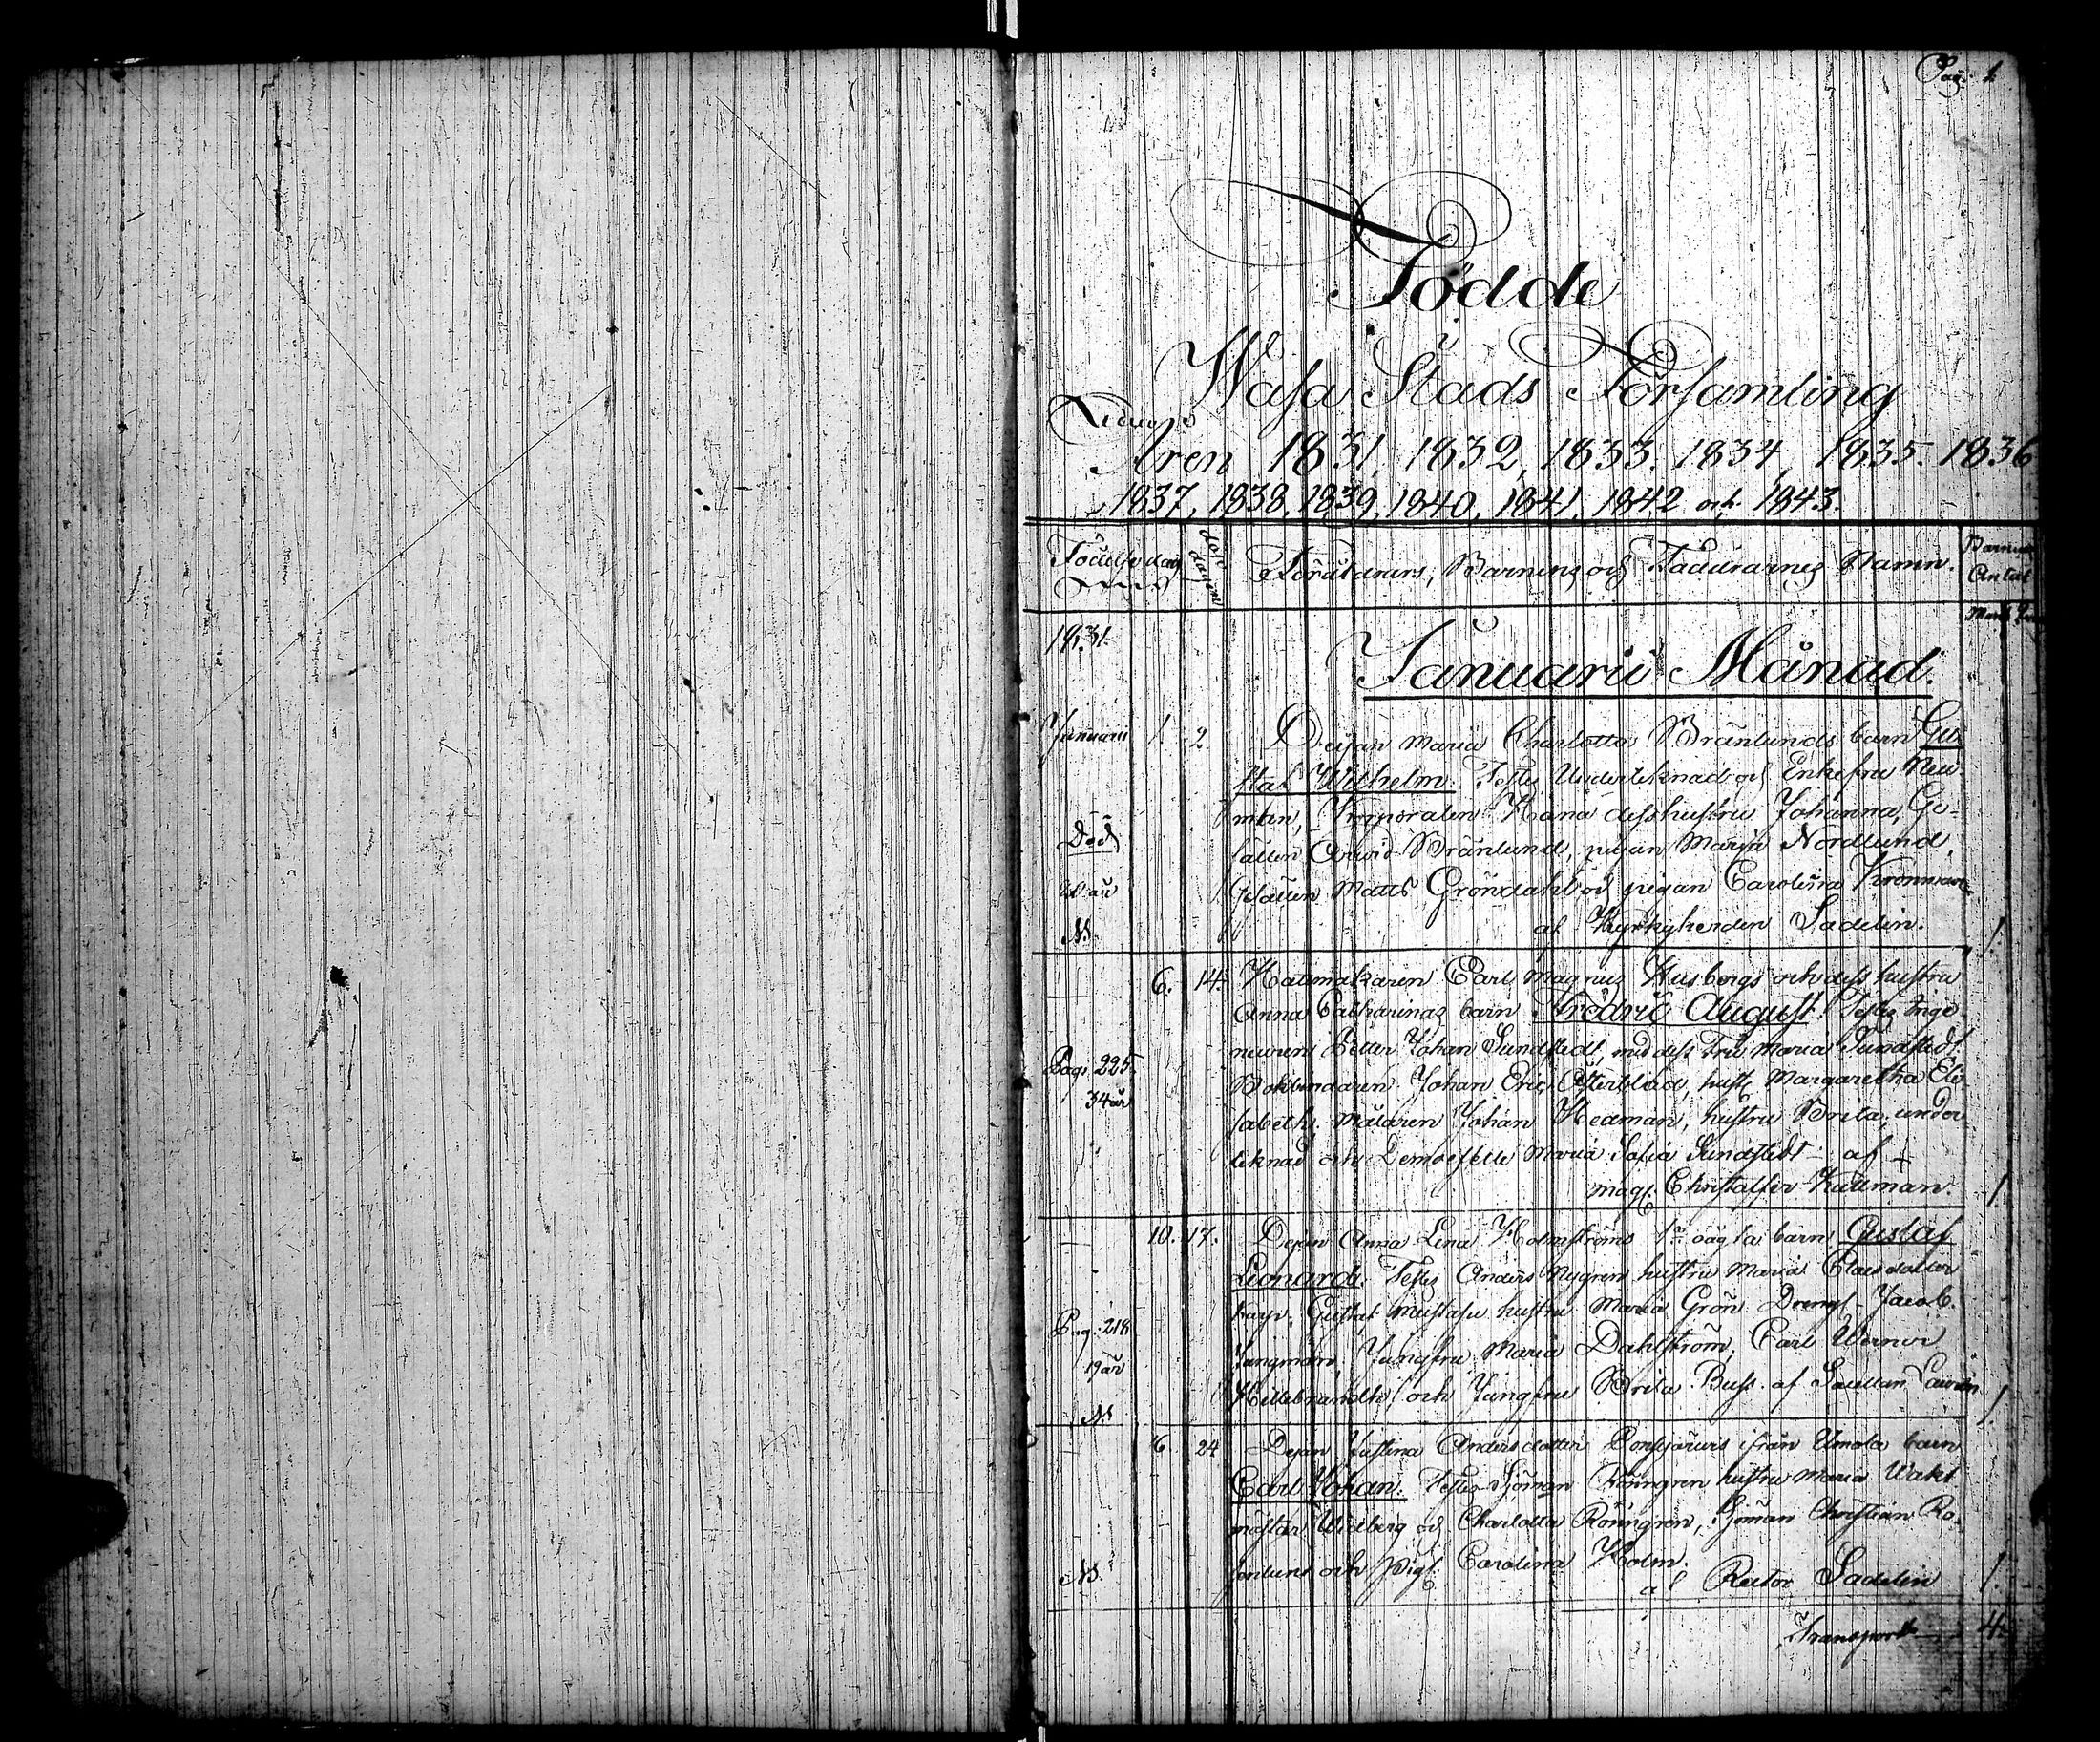 Pag. 1
Födde
Wasa Stads Församling
Åren 1831, 1832, 1833. 1834, 1835. 1836
1837, 1838, 1839, 1840, 1841, 1842 och 1843.
Födelsedag döpedagen Föräldrars, Barnens och Faddrarnes Namn. Barnens Antal
1831.
Januarii Månad.
Januarii 1. 2. Pigan Maria Charlotta Bränlunds barn Gu-
staf Wilhelm. Testes Undertecknad och Enkefru
Corporalen Hana dess hustru Johanna, Ge-
Död sällen Arvid Bränlund, pigan Maria Nordlund,
Gesällen Matts Gröndahl och pigan Carolina
af Kyrkoherden Sadelin. 1.
6. 14. Hattmakaren Carl Magnus och dess hustru
Anna Catharinas barn Fredric August. Testes Inge-
neuren Petter Johan Sundstedt, med dess Fru Maria Sundstedt
Pag. 225. Bokbindaren Johan Eric Österblad, hustr. Margaretha Eli-
34 år sabeth, Målaren Johan Hedman, hustru Brita, under-
tecknad och Demoiselle Maria Sofia Sundstedt af
mag. Christoffer Kullman. 1
10. 17. Pigan Anna Lena Holmströms oägta barn Gustaf
Leonard. Testes Anders Nygren hustru Maria Claesdotter
Gustaf hustru Maria Grön Drengs. Jacob
Pag. 218 Jungman, Jungfru Maria Dahlström, Carl Werner
19 år Hillebrandt och Jungfru Brita af 1.
24 Pigan Justina Andersdotter ifrån barn
Carl Johan. Testes Sjöman Rönngren hustru Maria Wakt
mästar Widberg och Charlotta Rönngren, Sjöman Christian Ro-
och Pig. Carolina Holm.
af Rector Sadelin 1.
Transport 4.